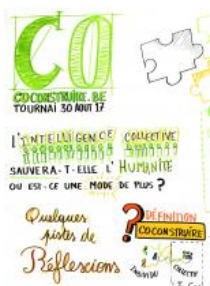 CO
COCONSTRUIRE.BE
TOURNAI 30 AOUT 17
L'INTELLIGENCE COLLECTIVE
SAUVERA-T-ELLE L'HUMANITÉ
OU EST-CE UNE MODE DE PLUS ?
Quelques
pistes de
Réflexions
? DÉFINITION
COCONSTRUIRE
INDIVIDU
COLLECTIF